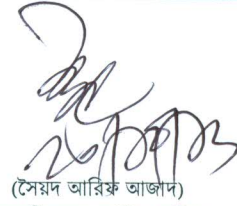 (সৈয়দ আরিফ আজাদ)